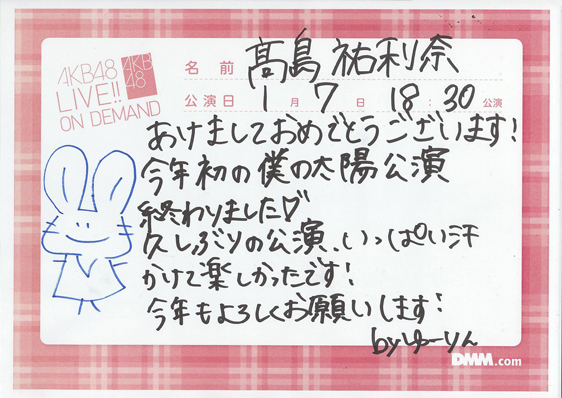 AKB48
LIVE!!
ON DEMAND
AKB
48
名前 髙島祐利奈
公演日 1月7日 18:30公演
あけましておめでとうございます!
今年初の僕の太陽公演
終わりました♡
久しぶりの公演、いっぱい汗
かけて楽しかったです!
今年もよろしくお願いします!
byゆーりん
DMM.com